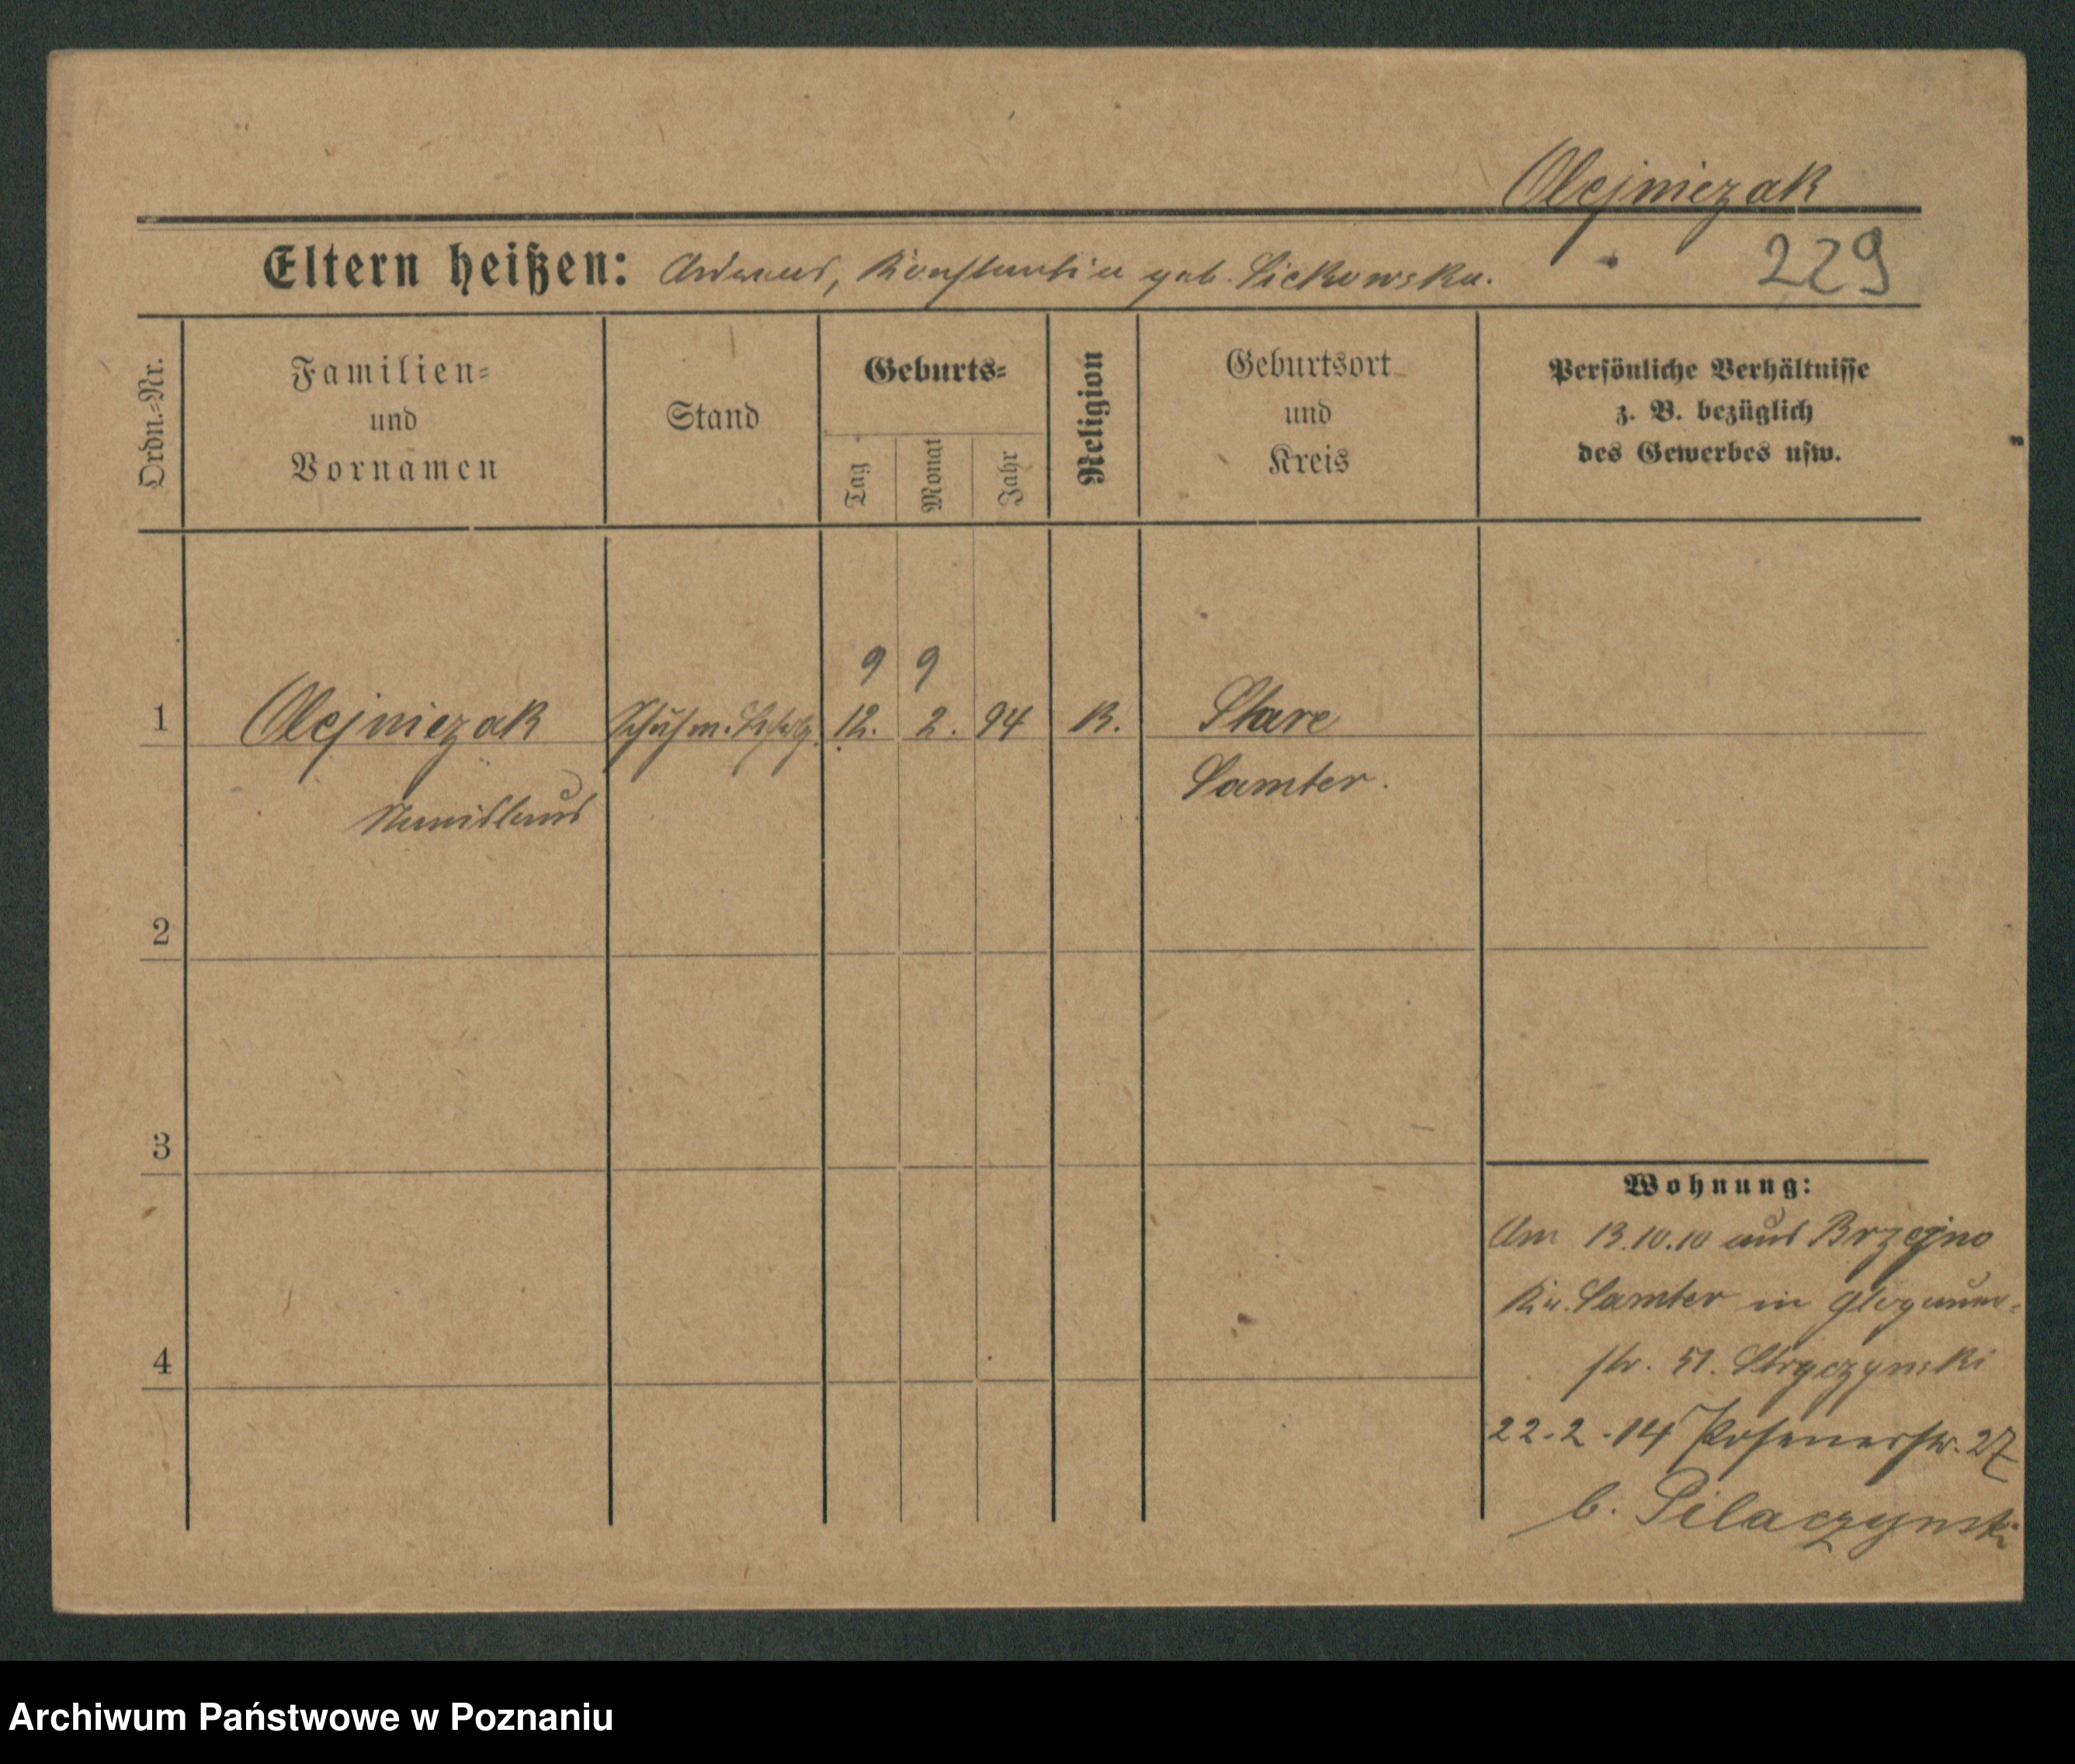 Olejniczak
Eltern heißen: Andreas, Konstantia geb. Sickowska.
229
Ordn.=Nr.
Familien=
und
Vornamen
Stand
Geburts=
Tag
Monat
Jahr
Religion
Geburtsort
und
Kreis
Persönliche Verhältnisse
z. B. bezüglich
des Gewerbes usw.
9 9
1 Olejniczak Schuhm. 12. 2. 94 K. Stare
Samter.
Stanislaus
2
3
4
Wohnung:
Am 13.10.10 aus Brzezno
Kr. Samter in Glogauer=
str. 51. Stryczynski
22.2.14 Posenerstr. 27
b. Pilaczynski
Archiwum Państwowe w Poznaniu